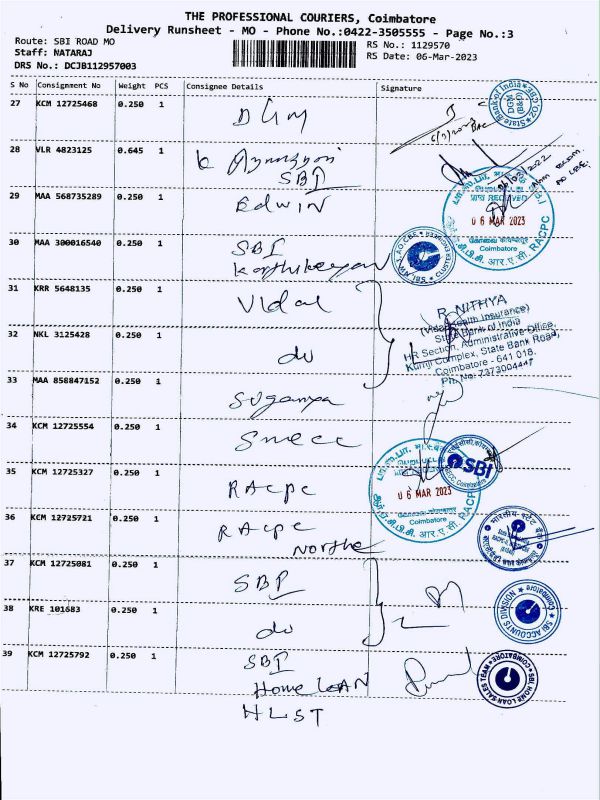 THE PROFESSIONAL COURIERS, Coimbatore
Delivery Runsheet - MO - Phone No.:0422-3505555 - Page No.:3
Route: SBI ROAD MO
Staff: NATARAJ
DRS No.: DCJB112957003
RS No.: 1129570
RS Date: 06-Mar-2023
S No Consignment No Weight PCS Consignee Details Signature
27 KCM 12725468 0.250 1 DGM
State Bank of India
DGM
(B&O)
28 VLR 4823125 0.645 1
SBI
29 MAA 568735289 0.250 1 Edwin
RECEIVED
06 MAR 2023
Coimbatore
RACPC
30 MAA 300016540 0.250 1 SBI
Karthikeyan
31 KRR 5648135 0.250 1 Vidal
32 NKL 3125428 0.250 1 do
R. NITHYA
(Vidal Health Insurance)
State Bank of India
HR Section, Administrative Office,
Kuriji Complex, State Bank Road,
Coimbatore - 641 018.
Ph. No: 7373004447
33 MAA 858847152 0.250 1 Suganya
34 KCM 12725554 0.250 1 Smecc
SBI
35 KCM 12725327 0.250 1 RACPC
06 MAR 2023
Coimbatore
RACPC
36 KCM 12725721 0.250 1 RACPC
North
भारतीय स्टेट बैंक
37 KCM 12725081 0.250 1 SBI
38 KRE 101683 0.250 1 do
SBI ACCOUNTS DIVISION
Coimbatore
39 KCM 12725792 0.250 1 SBI
Home LOAN
HLST
SBI, HOME LOAN SALES TEAM
COIMBATORE